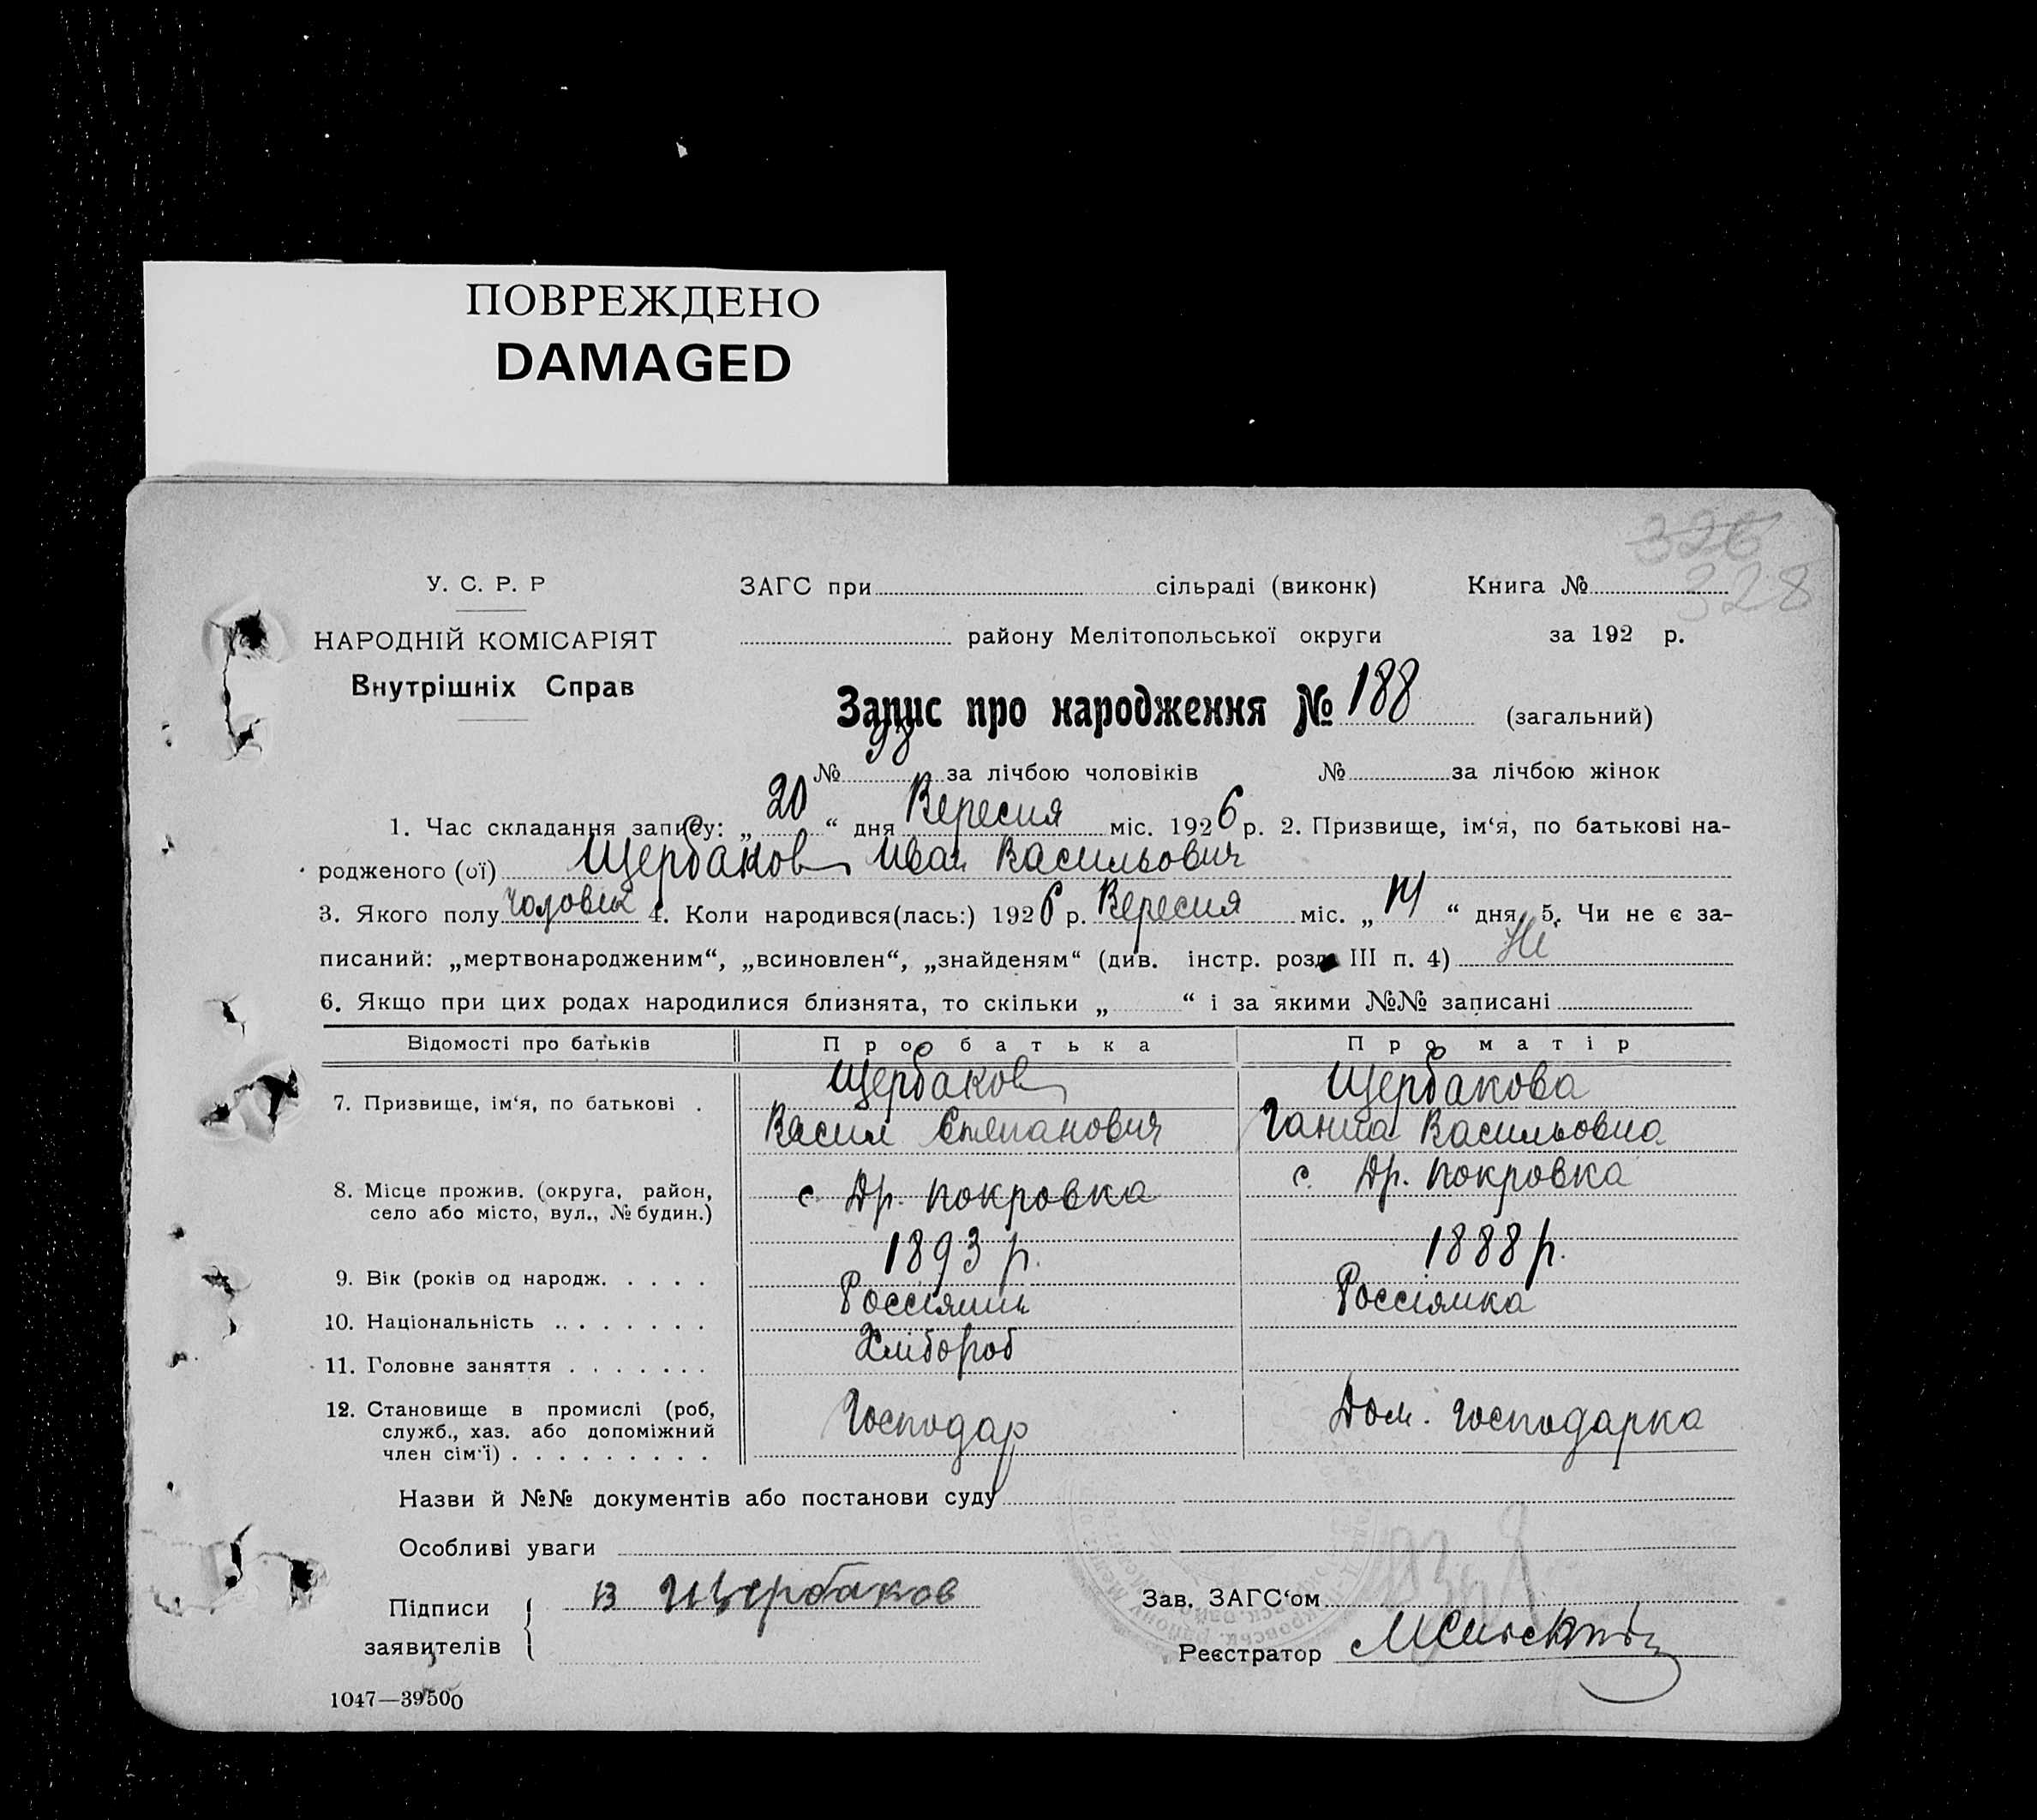 ПОВРЕЖДЕНО
DAMAGED
326
328
У. С. Р. Р ЗАГС при сільраді (виконк) Книга №
НАРОДНІЙ КОМІСАРІЯТ району Мелітопольської округи за 192 р.
Внутрішніх Справ
Запис про народження № 188 (загальний)
№ 98 за лічбою чоловіків № за лічбою жінок
1. Час складання запису: „ 20 “ дня Вересня міс. 1926 р. 2. Призвище, ім‘я, по батькові на-
родженого (ої) Щербаков Иван Васильович
3. Якого полу чоловік 4. Коли народився(лась:) 1926 р. Вересня міс. „ 14 “ дня, 5. Чи не є за-
писаний: „мертвонародженим“, „всиновлен“, „знайденям“ (див. інстр. розд III п. 4) Ні
6. Якщо при цих родах народилися близнята, то скільки „ “ і за якими №№ записані
Відомості про батьків Про батька Про матір
7. Призвище, ім‘я, по батькові . Щербаков Щербакова
Васил Степанович Ганна Васильовна
8. Місце прожив. (округа, район, с. Др. Покровка с. Др. Покровка
село або місто, вул., № будин.)
9. Вік (років од народж. . . . . 1893 р. 1888 р.
10. Національність . . . . . . . . Россіянин Россіянка
11. Головне заняття . . . . . . . Хлібороб
12. Становище в промислі (роб, Господар Дом. господарка
служб., хаз. або допоміжний
член сім‘ї) . . . . . . . . .
Назви й №№ документів або постанови суду
Особливі уваги
Підписи В Щербаков Зав. ЗАГС‘ом
заявителів Реєстратор
1047—39500